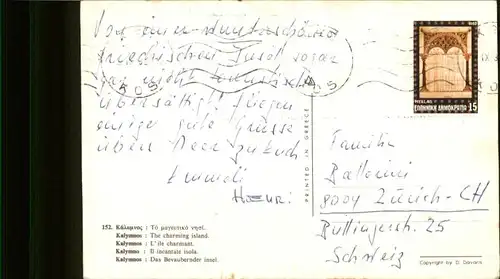 Von einer wunderschönen
griechischen Insel sogar
gar nicht touristisch
übersättigt fliegen
einige gute Grüsse
übers Meer zu Euch
Emmeli
Heeri
KOS
KOS
HELLAS
ΕΛΛΗΝΙΚΗ ΔΗΜΟΚΡΑΤΙΑ 15
PRINTED IN GREECE
Familie
Ballarini
8004 Zürich-CH
Bullingerstr. 25
Schweiz
152. Κάλυμνος : Τό μαγευτικό νησί.
Kalymnos : The charming island.
Kalymnos : L'ile charmant.
Kalymnos : Il incantate isola.
Kalymnos : Das Bevaubernder insel.
Copyright by D. Davaris